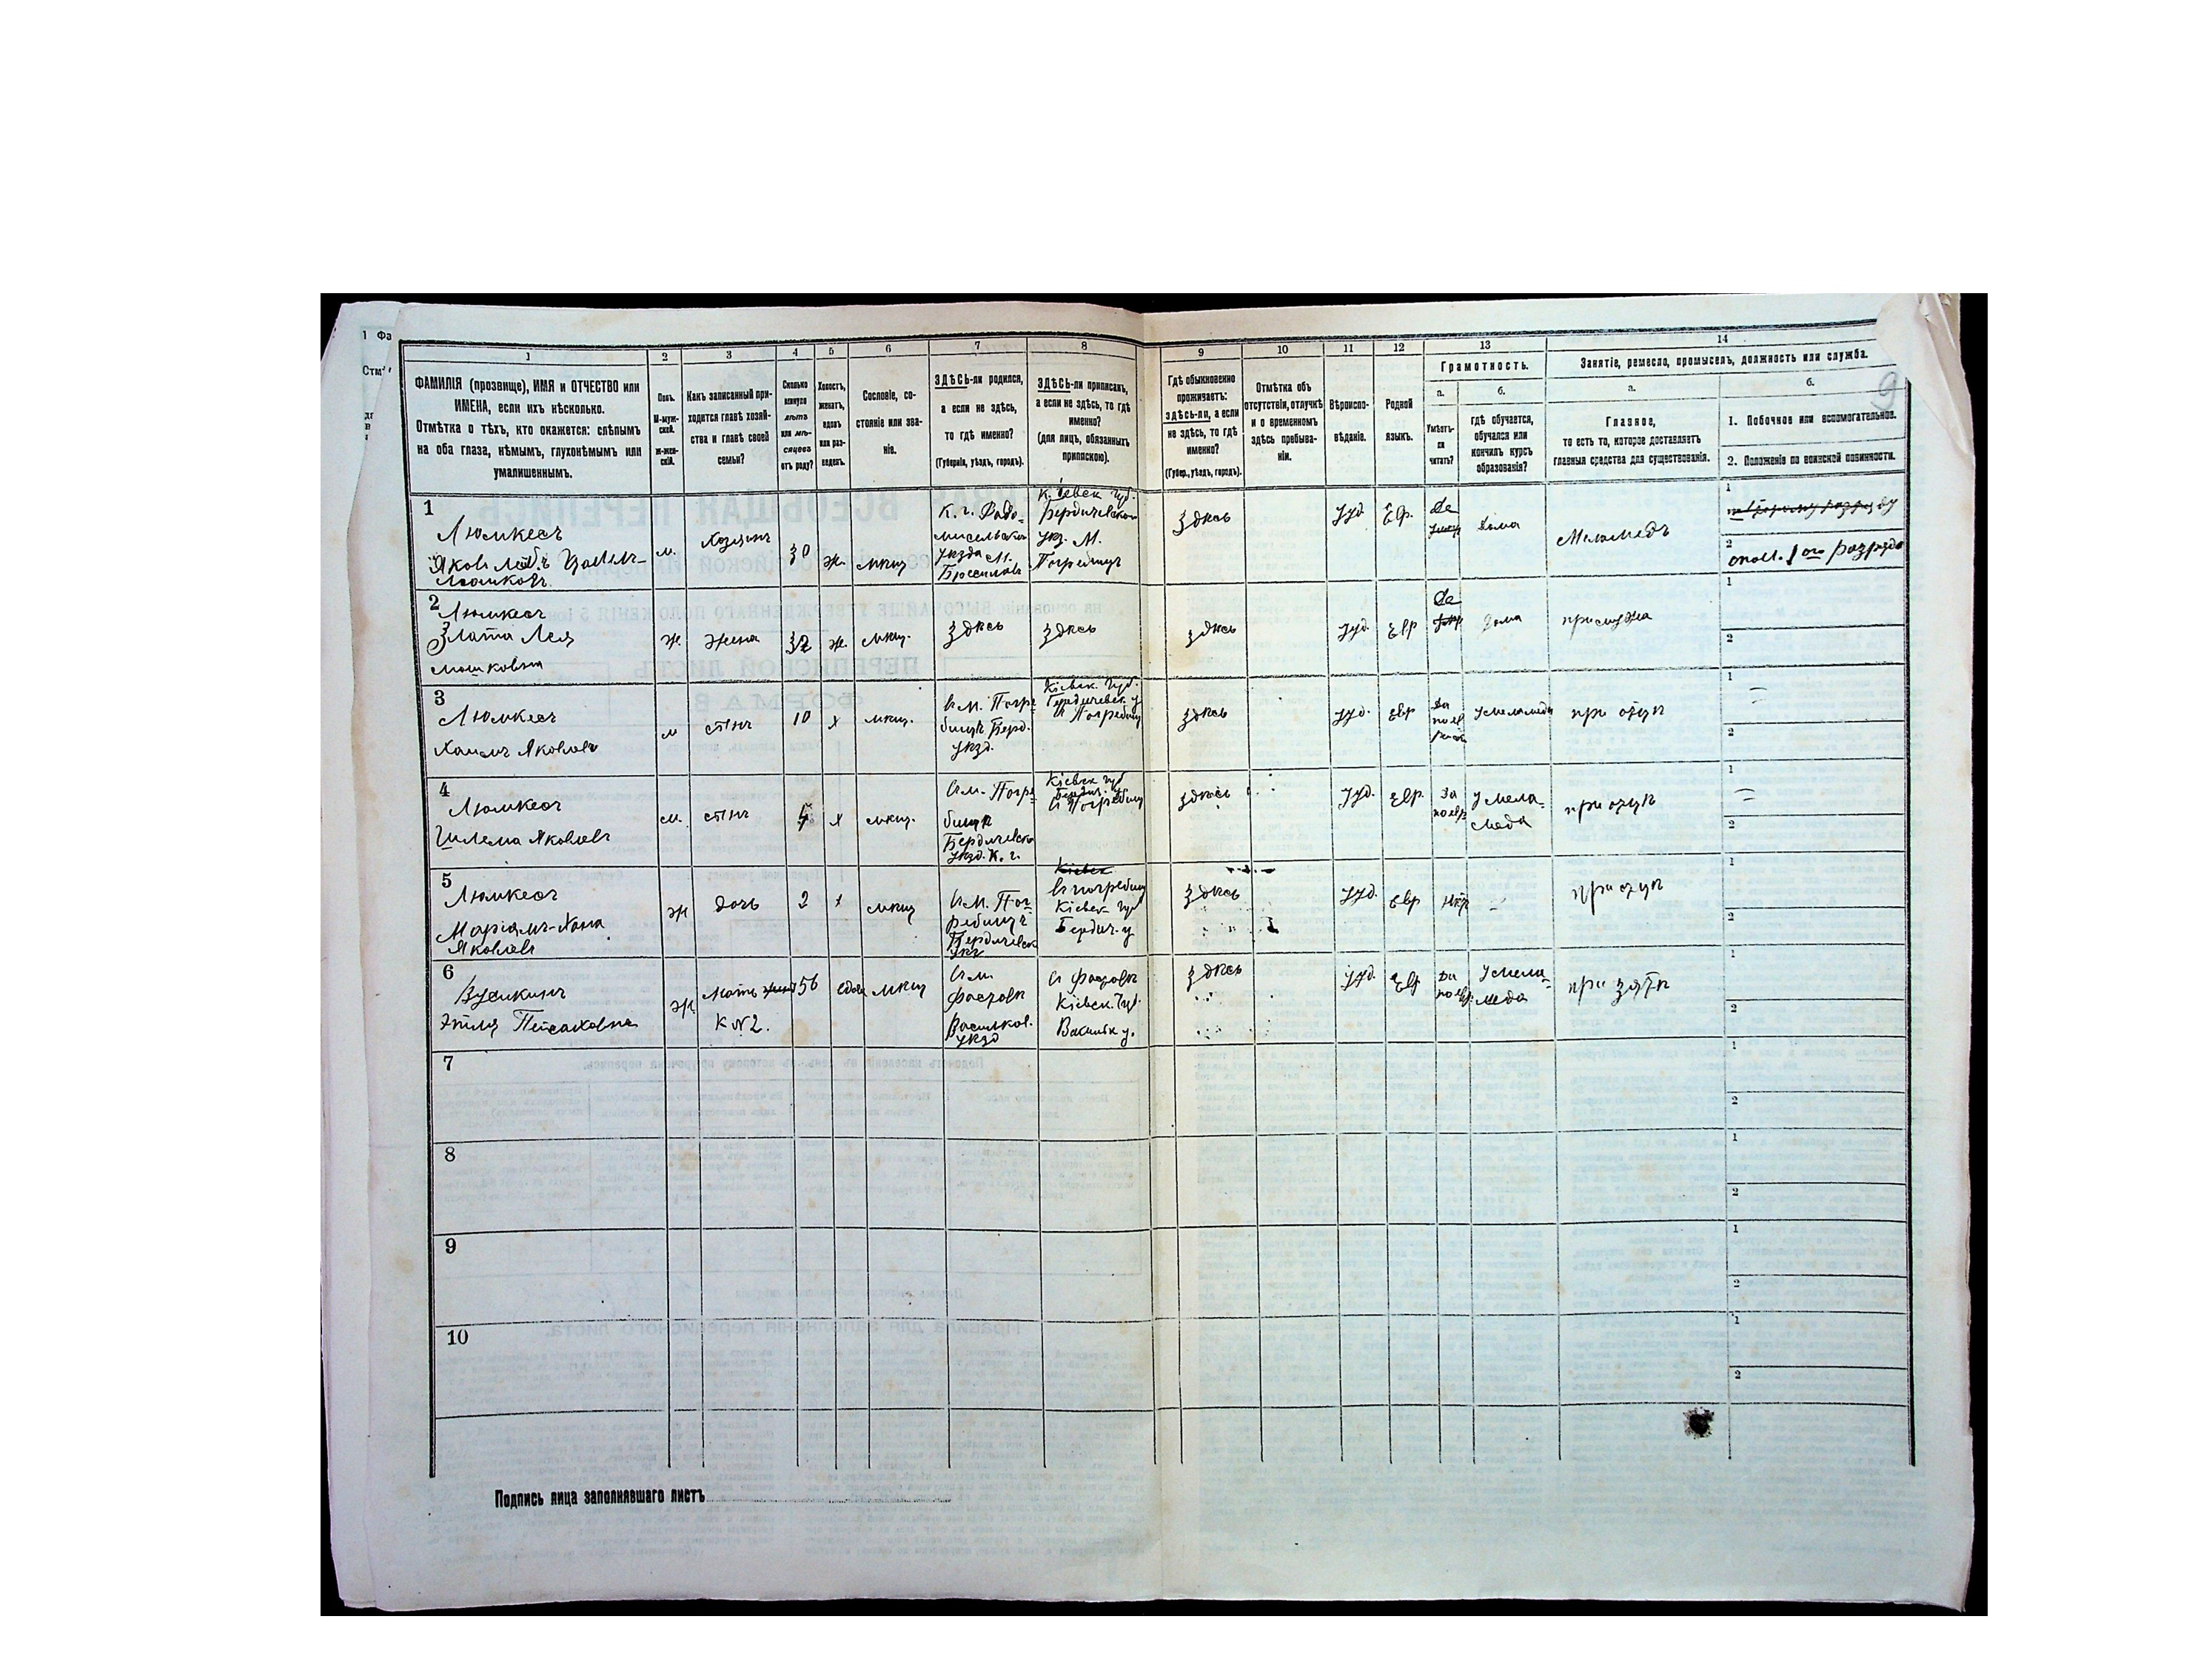 1 Фа
1 2 3 4 5 6 7 8 9 10 11 12 13 14
ФАМИЛІЯ (прозвище), ИМЯ и ОТЧЕСТВО или
ИМЕНА, если ихъ нѣсколько.
Отмѣтка о тѣхъ, кто окажется: слѣпымъ
на оба глаза, нѣмымъ, глухонѣмымъ или
умалишеннымъ.
Полъ.
М-муж-
ской.
Ж-жен-
скій.
Какъ записанный при-
ходится главѣ хозяй-
ства и главѣ своей
семьи?
Сколько
минуло
лѣтъ
или мѣ-
сяцевъ
отъ роду?
Холостъ,
женатъ,
вдовъ
или раз-
веденъ.
Сословіе, со-
стояніе или зва-
ніе.
ЗДѢСЬ-ли родился,
а если не здѣсь,
то гдѣ именно?
(Губернія, уѣздъ, городъ).
ЗДѢСЬ-ли приписанъ,
а если не здѣсь, то гдѣ
именно?
(для лицъ, обязанныхъ
припискою).
Гдѣ обыкновенно
проживаетъ:
здѣсь-ли, а если
не здѣсь, то гдѣ
именно?
(Губер., уѣздъ, городъ).
Отмѣтка объ
отсутствіи, отлучкѣ
и о временномъ
здѣсь пребыва-
ніи.
Вѣроиспо-
вѣданіе.
Родной
языкъ.
Грамотность.
а.
Умѣетъ-
ли
читать?
б.
гдѣ обучается,
обучался или
кончилъ курсъ
образованія?
Занятіе, ремесло, промыселъ, должность или служба.
а.
Главное,
то есть то, которое доставляетъ
главныя средства для существованія.
б.
9
1. Побочное или вспомогательное.
2. Положеніе по воинской повинности.
1
Люмкесъ
м.
Хозяинъ
30
ж.
мѣщ
К. г. Радо-
мисельскаго
уѣзда М.
Кіевск губ.
Бердичевскаго
уѣз. М.
Погребищъ
здѣсь
Іуд
Евр.
Да
дома
Меламедъ
1
2
опол. 1го разряда
2
Люмкесъ
Злата Лея
Мошковна
ж.
жена
32
ж.
мѣщ.
здѣсь
здѣсь
здѣсь
Іуд.
Евр
Да
дома
прислуга
1
2
3
Люмкесъ
Хаимъ Яковлевъ
м
сынъ
10
х
мѣщ.
Въ м. Погре-
бищѣ Берд.
уѣзд.
Кіевск. Губ.
Бердичевск. у
в Погребищ
здѣсь
Іуд.
Евр
Да
по ев
рейск
у меламеда
при отцѣ
1
2
4
Люмкесъ
Шлема Яковлевъ
м.
сынъ
х
мѣщ.
Въ м. Погре
бищѣ
Бердичевск
уѣзд. К. г.
Кіевск губ
Бердич. у
в Погребищ
здѣсь
Іуд.
Евр.
Да
по евр
у мела-
меда
при отцѣ
1
2
5
Люмкесъ
Маріамъ-Хана
Яковлев
ж
дочь
2
х
мѣщ
Въ м. Пог-
ребищѣ
Бердичевск
уѣз
в погребищ
Кіевск губ
Бердич. у
здѣсь
Іуд.
Евр
нѣт
при отцѣ
1
2
6
Этля Пейсаховна
ж
Мать
К №2.
56
вдова
мѣщ
Въ м.
Фастовѣ
Васильков.
уѣзд
в Фастовѣ
Кіевск. Губ.
Васильк у.
здѣсь
Іуд.
Евр
Да
по евр.
у мела-
меда
при зятѣ
1
2
7
1
2
8
1
2
9
1
2
10
1
2
Подпись лица заполнявшаго листъ